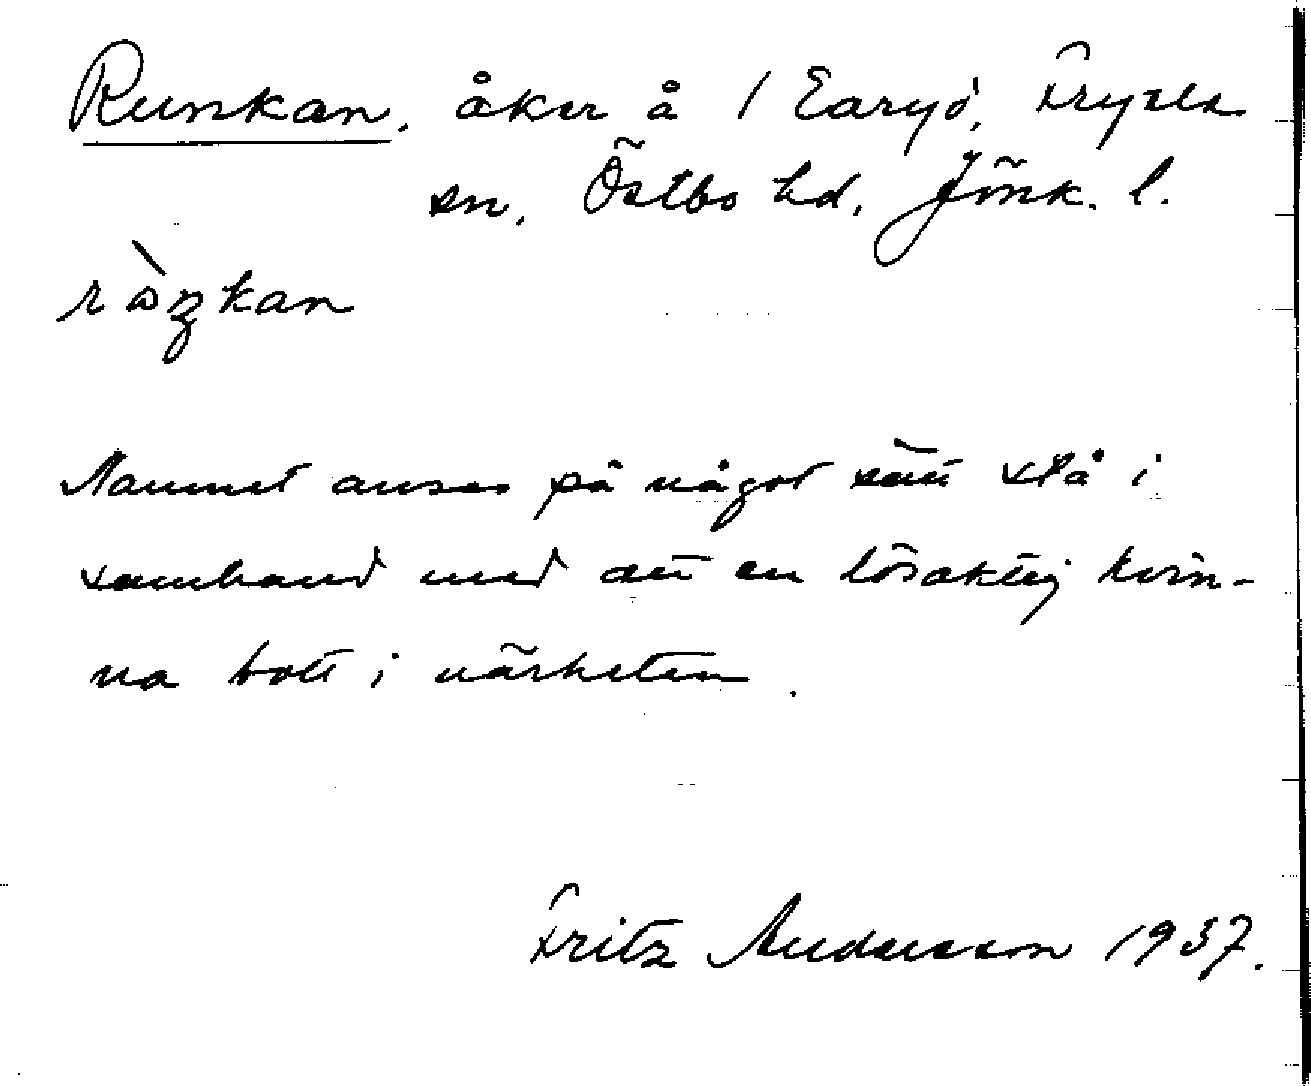 Runkan, åker å / Earyd, Fryele
sn, Östbo hd, Jönk. l.
ràŋkan
Namnet anses på något sätt stå i
samband med att en lösaktig kvin-
na bott i närheten.
Fritz Andersson 1937.